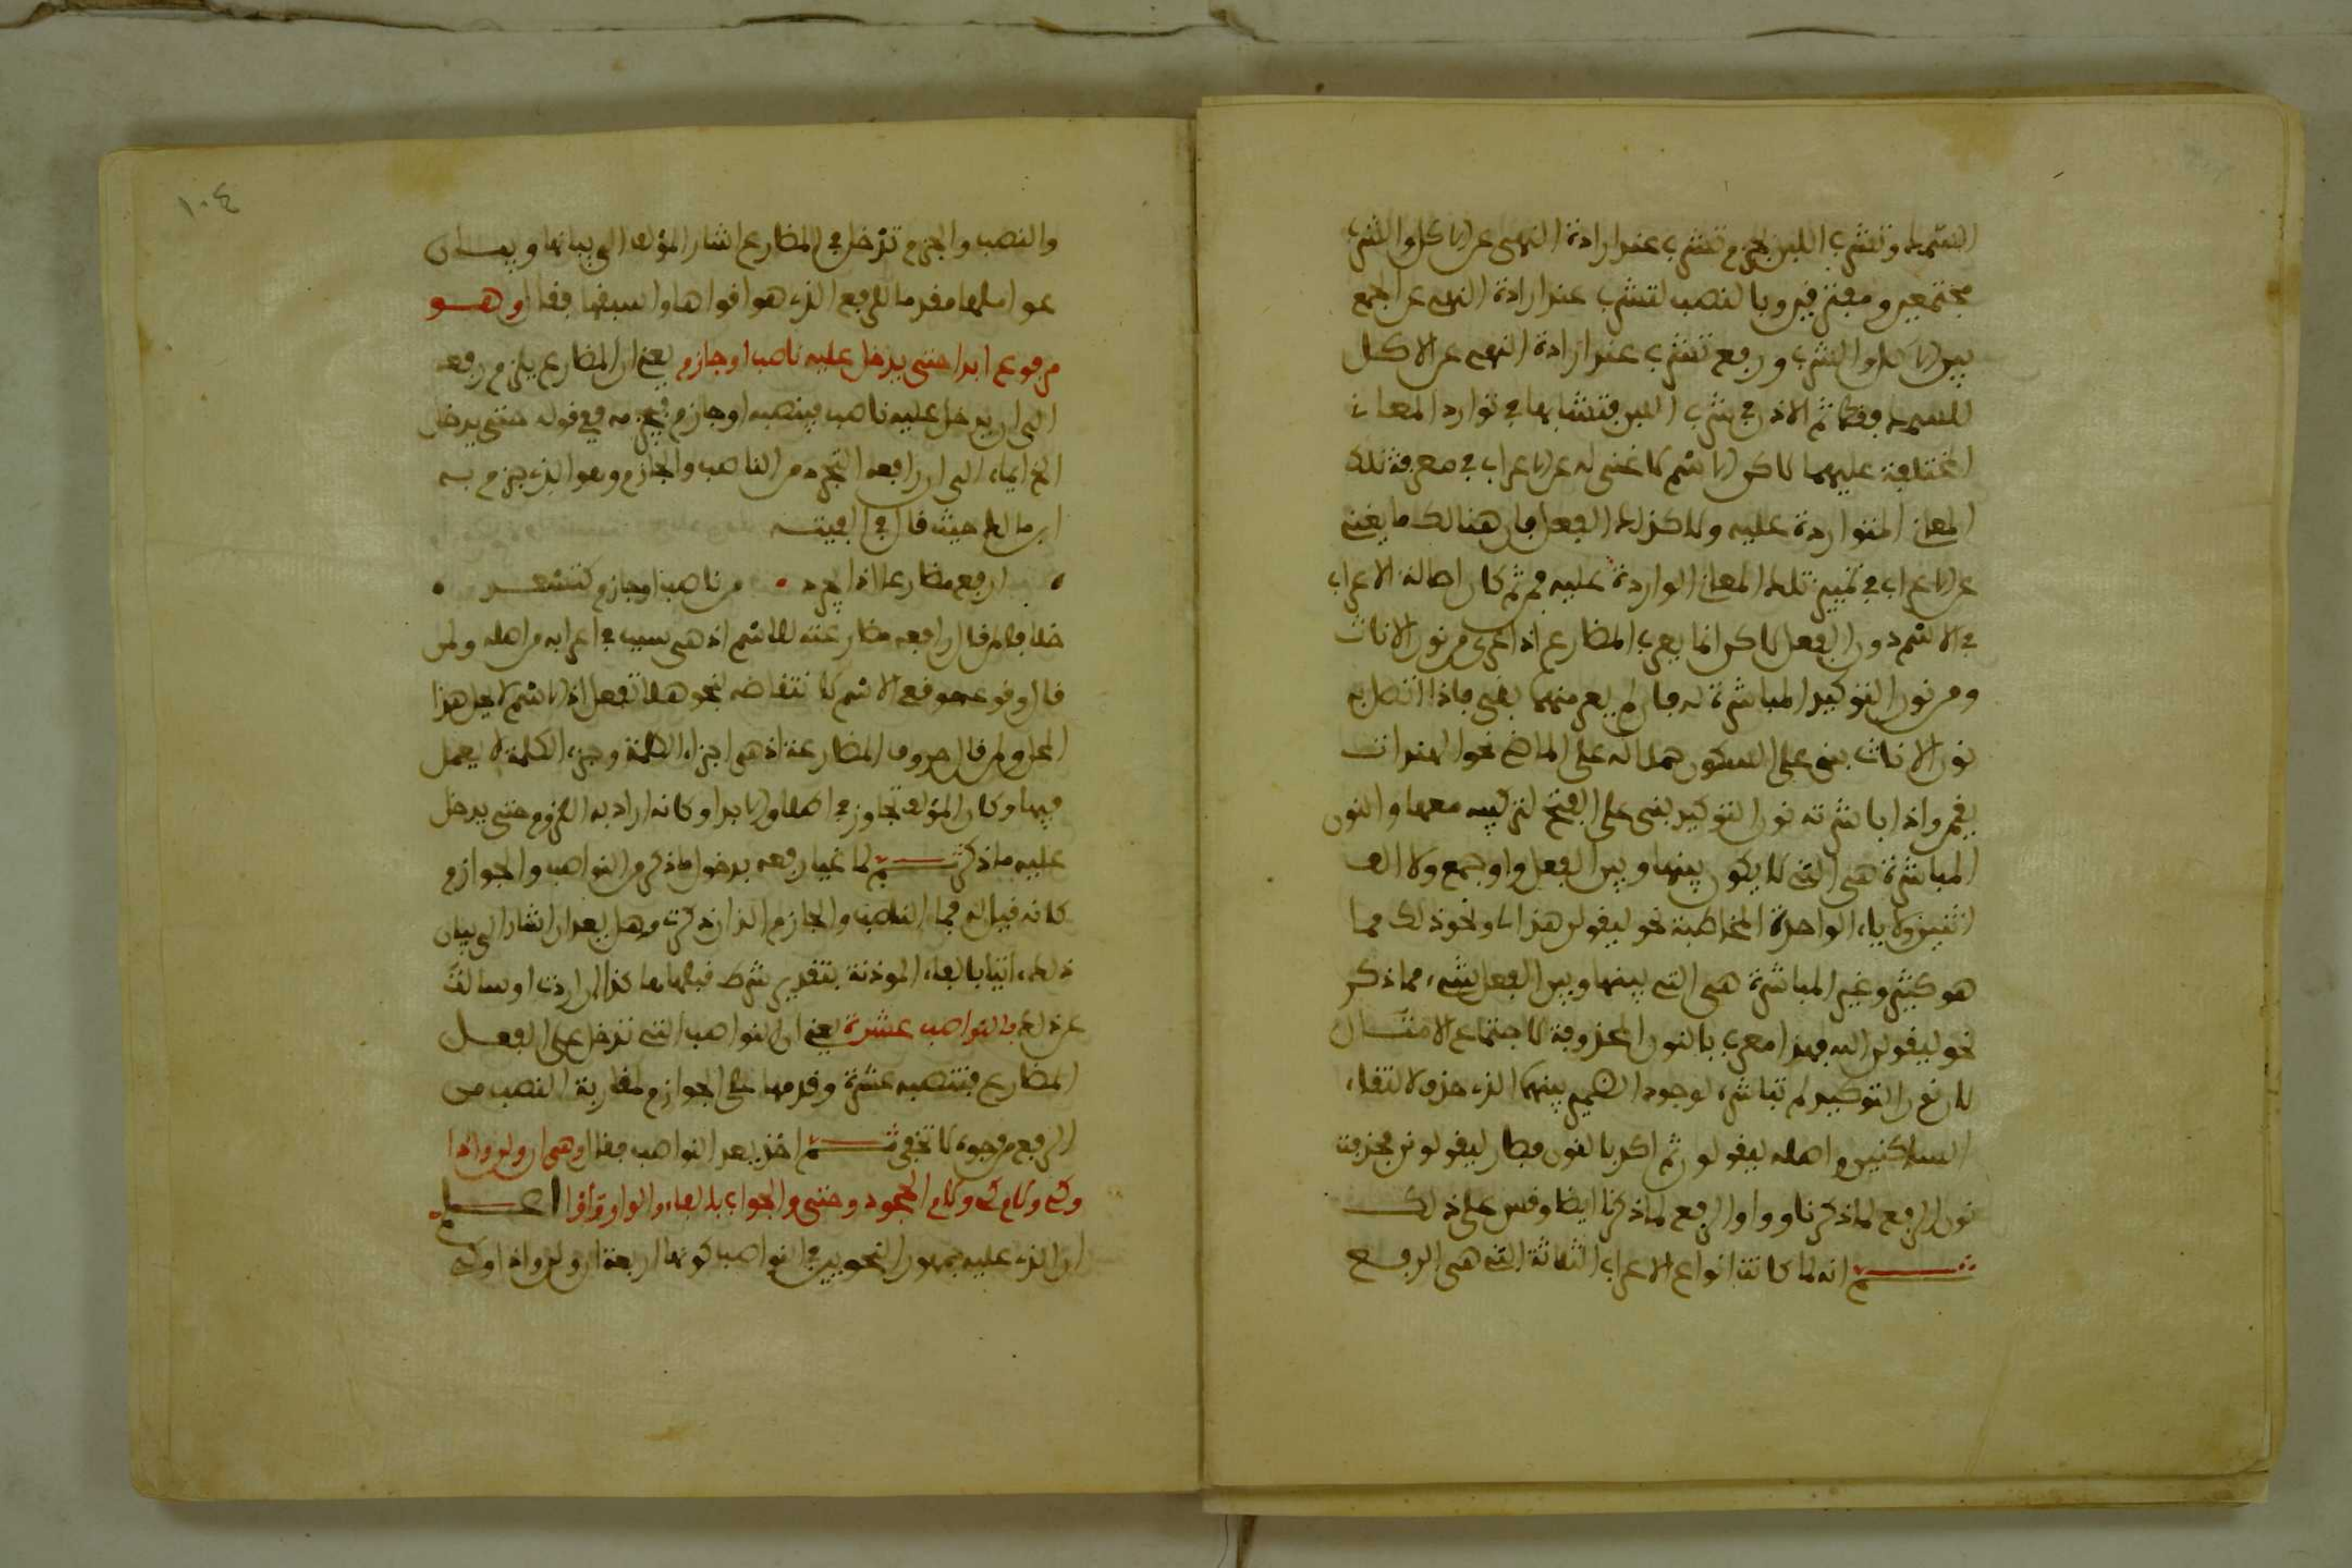 السمك وتشرب اللبن بجزم تشرب عند ارادة النهي عن الاكل والشرب
مجتمعين ومفترقين وبالنصب لتشرب عند ارادة النهي عن الجمع
بين الاكل والشرب ورفع تشرب عند ارادة النهي عن الاكل
للسمك فقط ثم الاذن في شرب اللبن فتشابها في توارد المعاني
المختلفة عليهما لاكن الاسم لا غنى له عن الاعراب في معرفة تلك
المعاني المتواردة عليه ولا كذلك الفعل فان هنالك ما يغني
عن الاعراب في تمييز تلك المعاني الواردة عليه فمن ثم كان اصالة الاعراب
في الاسم دون الفعل لاكن انما يعرب المضارع اذا عري من نون الاناث
ومن نون التوكيد المباشرة له فان لم يعر منهما بني فاذا اتصل به
نون الاناث بني على السكون حملا له على الماضي نحو الهندات
يقمن واذا باشرته نون التوكيد بني على الفتح لتركيبه معها والنون
المباشرة هي التي لا يكون بينها وبين الفعل واو جمع ولا الف
اثنين ولا ياء الواحدة المخاطبة نحو ليقولن هذا لي ونحو ذلك مما
هو كثير وغير المباشرة هي التي بينها وبين الفعل شيء مما ذكر
نحو ليقولن الله فهذا معرب بالنون المحذوفة لاجتماع الامثال
لان نون التوكيد لم تباشره لوجود الضمير بينهما الذي حذف لالتقاء
الساكنين واصله ليقولون ثم اكد بالنون فصار ليقولونن فحذفت
نون الرفع لما ذكرنا وواو الرفع لما ذكرنا ايضا وقس على ذلك
ثم انه لما كانت انواع الاعراب الثلاثة التي هي الرفع
١٠٤
والنصب والجزم تدخل في المضارع اشار المؤلف الى بيانها وبيان
عواملها مقدما للرفع الذي هو اقواها واسبقها فقال وهو
مرفوع ابدا حتى يدخل عليه ناصب او جازم يعني ان المضارع يلزم رفعه
الى ان يدخل عليه ناصب فينصبه او جازم فيجزمه ففي قوله حتى يدخل
الخ ايماء الى ان رافعه التجرد من الناصب والجازم وهو الذي جزم به
ابن مالك حيث قال في الفيته
ارفع مضارعا اذا يجرد • من ناصب او جازم كتسعد •
خلافا لمن قال ان رافعه مضارعته للاسم اذ هي سبب في اعرابه من اصله ولمن
قال وقوعه موقع الاسم لانتقاضه بنحو هلا تفعل اذ الاسم لا يحل هذا
المحل ولمن قال حروف المضارعة اذ هي اجزاء الكلمة وجزء الكلمة لا يعمل
فيها وكان المؤلف تجاوز في اطلاق الابد او كانه اراد به اللزوم حتى يدخل
عليه ما ذكر ثم لما غيا رفعه بدخول ما ذكر من النواصب والجوازم
كانه قيل له فما الناصب والجازم الذان ذكرت وهل بعد ان اشار الى بيان
ذلك اتيا بالفاء الموذنة بتقدير شرط قبلها ها كذا ان اردت او سالت
عن ذلك فالنواصب عشرة يعني ان النواصب التي تدخل على الفعل
المضارع فتنصبه عشرة وقدمها على الجوازم لمقاربة النصب من
الرفع من وجوه لا تخفى ثم اخذ يعد النواصب فقال وهي ان ولن واذا
وكي ولام كي ولام الجحود وحتى والجواب بالفاء والواو واو اعلم
ان الذي عليه جمهور النحويين في النواصب كونها اربعة ان ولن واذا وكي